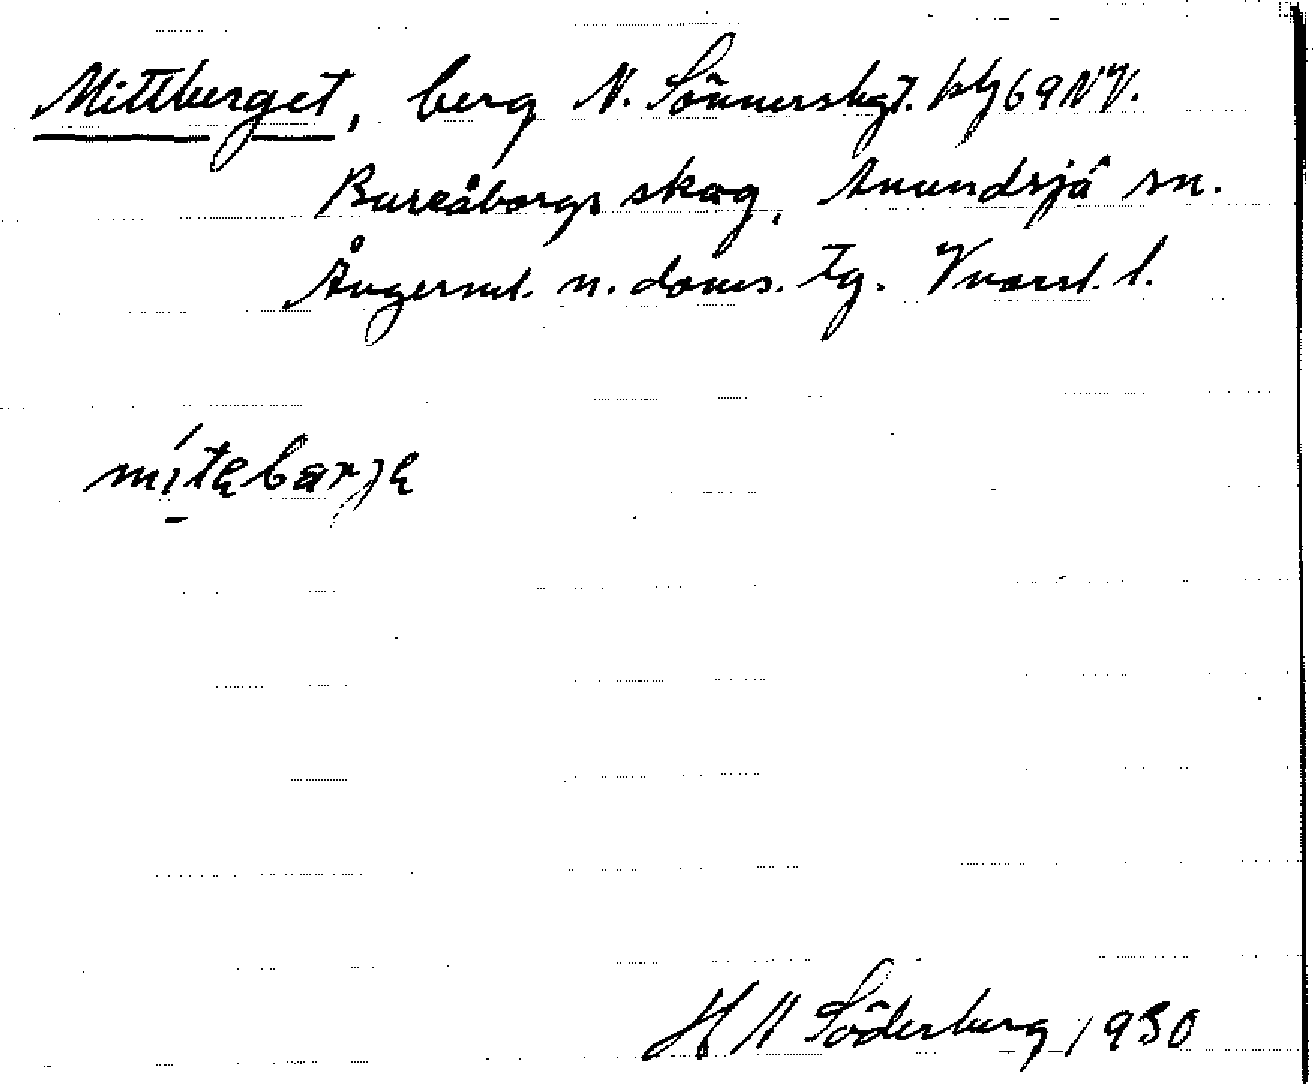 Mittberget, berg N. Sönnerstgt. klj 69 NV.
Bureåborgs skog, Anundsjö sn.
Ångerml. n. doms. tg. Vnorrl. l.
mítebarje
H N Söderberg 1930